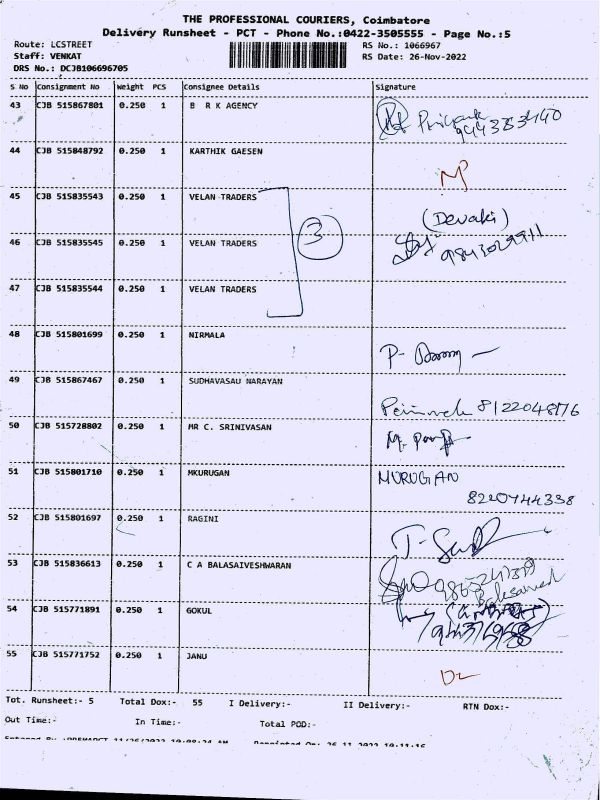 THE PROFESSIONAL COURIERS, Coimbatore
Delivery Runsheet - PCT - Phone No.:0422-3505555 - Page No.:5
Route: LCSTREET
RS No.: 1066967
Staff: VENKAT
RS Date: 26-Nov-2022
DRS No.: DCJB106696705
S No Consignment No Weight PCS Consignee Details Signature
43 CJB 515867801 0.250 1 B R K AGENCY
44 CJB 515848792 0.250 1 KARTHIK GAESEN
45 CJB 515835543 0.250 1 VELAN TRADERS
(Devaki)
3
46 CJB 515835545 0.250 1 VELAN TRADERS
47 CJB 515835544 0.250 1 VELAN TRADERS
48 CJB 515801699 0.250 1 NIRMALA
P-
49 CJB 515867467 0.250 1 SUDHAVASAU NARAYAN
8122048176
50 CJB 515728802 0.250 1 MR C. SRINIVASAN
51 CJB 515801710 0.250 1 MKURUGAN MURUGAN
8220744338
52 CJB 515801697 0.250 1 RAGINI
53 CJB 515836613 0.250 1 C A BALASAIVESHWARAN
54 CJB 515771891 0.250 1 GOKUL
55 CJB 515771752 0.250 1 JANU
Tot. Runsheet:- 5 Total Dox:- 55 I Delivery:- II Delivery:- RTN Dox:-
Out Time:- In Time:- Total POD:-